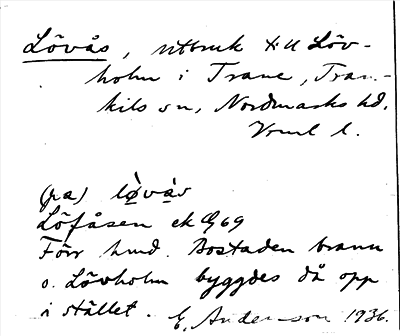 Lövås, utbruk till Löv-
holm i Trane, Tran-
kils sn, Nordmarks hd,
Vrml l.
(pa) lø̀vås
Löfåsen ek 69
Förr hmd. Bostaden brann
o. Lövholm byggdes då opp
i stället. E. Anderson 1936.